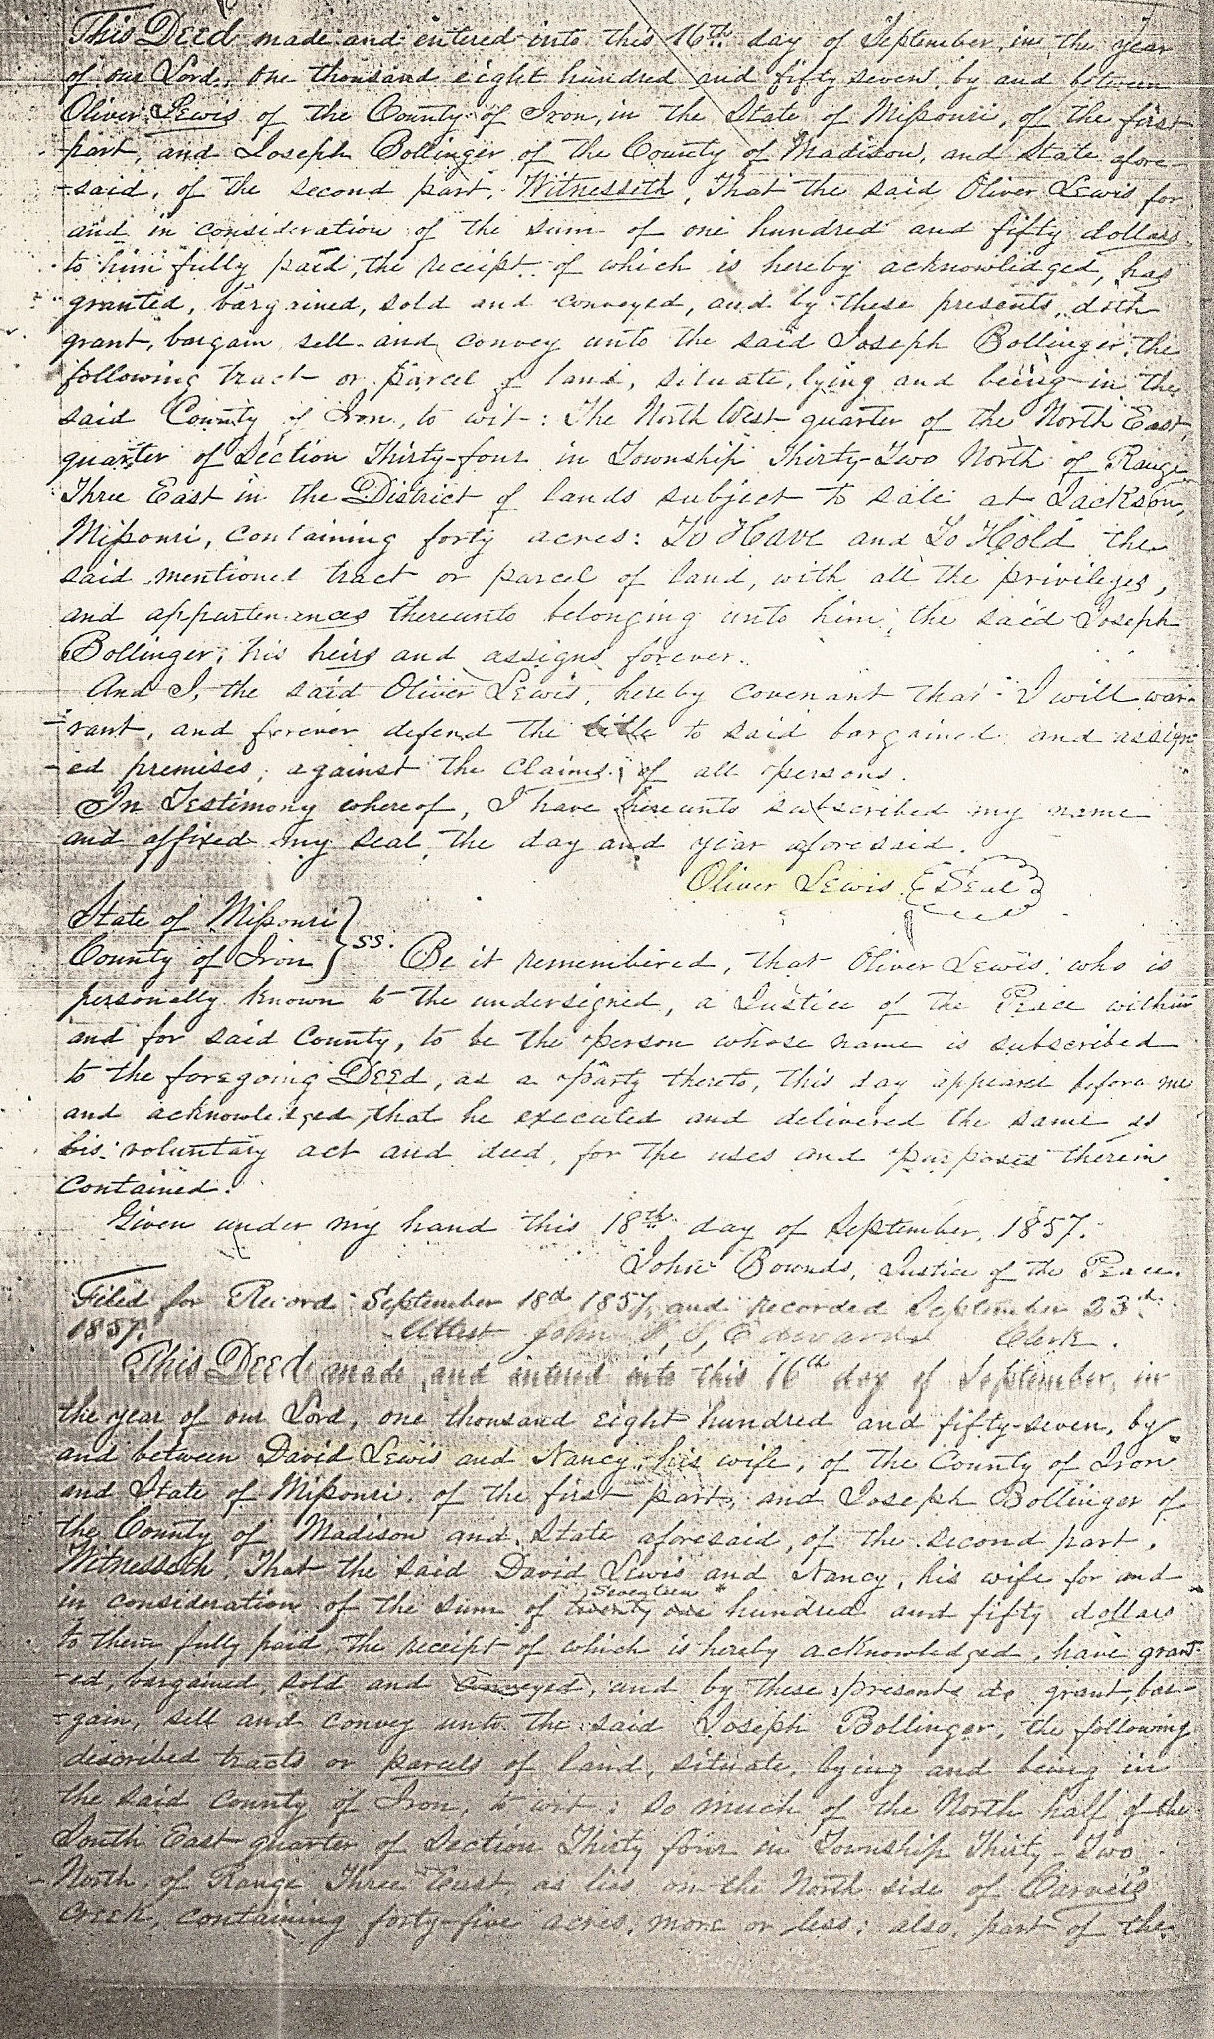 This Deed made and entered into this 16th day of September, in the year
of our Lord, One thousand eight hundred and fifty seven, by and between
Oliver Lewis of the County of Iron, in the State of Missouri, of the first
part, and Joseph Bollinger of the County of Madison, and State afore-
-said, of the second part. Witnesseth, That the said Oliver Lewis for
and in consideration of the sum of one hundred and fifty dollars
to him fully paid, the receipt of which is hereby acknowledged, has
granted, bargained, sold and conveyed, and by these presents, doth
grant, bargain sell and convey unto the said Joseph Bollinger, the
following tract or parcel of land, situate, lying and being in the
said County of Iron, to wit: The North West quarter of the North East
quarter of Section Thirty-four in Township Thirty-Two North of Range
Three East in the District of lands subject to sale at Jackson,
Missouri, containing forty acres: To Have and To Hold the
said mentioned tract or parcel of land, with all the privileges,
and appurtenences thereunto belonging unto him, the said Joseph
Bollinger, his heirs and assigns forever.
And I, the said Oliver Lewis, hereby covenant that I will war-
-rant, and forever defend the title to said bargained and assign-
-ed premises, against the claims of all persons.
In Testimony whereof, I have hereunto subscribed my name
and affixed my seal, the day and year aforesaid.
Oliver Lewis {Seal}
State of Missouri }
County of Iron } ss. Be it remembered, that Oliver Lewis, who is
personally known to the undersigned, a Justice of the Peace within
and for said County, to be the person whose name is subscribed
to the foregoing Deed, as a party thereto, this day appeared before me
and acknowledged, that he executed and delivered the same as
his voluntary act and deed, for the uses and purposes therein
contained.
Given under my hand this 18th day of September, 1857.
John Bownds, Justice of the Peace.
Filed for Record September 18d 1857, and recorded September 23d
1857. Attest John Edwards Clerk.
This Deed, made and entered into this 16th day of September, in
the year of our Lord, one thousand eight hundred and fifty-seven, by
and between David Lewis and Nancy, his wife, of the County of Iron
and State of Missouri, of the first part, and Joseph Bollinger of
the County of Madison and State aforesaid, of the second part.
Witnesseth, That the said David Lewis and Nancy, his wife for and
Seventeen
in consideration of the sum of twenty one hundred and fifty dollars
to them fully paid, the receipt of which is hereby acknowledged, have grant-
-ed, bargained, sold and conveyed, and by these presents do grant, bar-
-gain, sell and convey unto the said Joseph Bollinger, the following
described tracts or parcels of land, situate, lying and being in
the said County of Iron, to wit: so much of the North half of the
South East quarter of Section Thirty four in Township Thirty-Two
North, of Range Three East, as lies on the North side of Carver's
Creek, containing forty-five acres, more or less; also, part of the